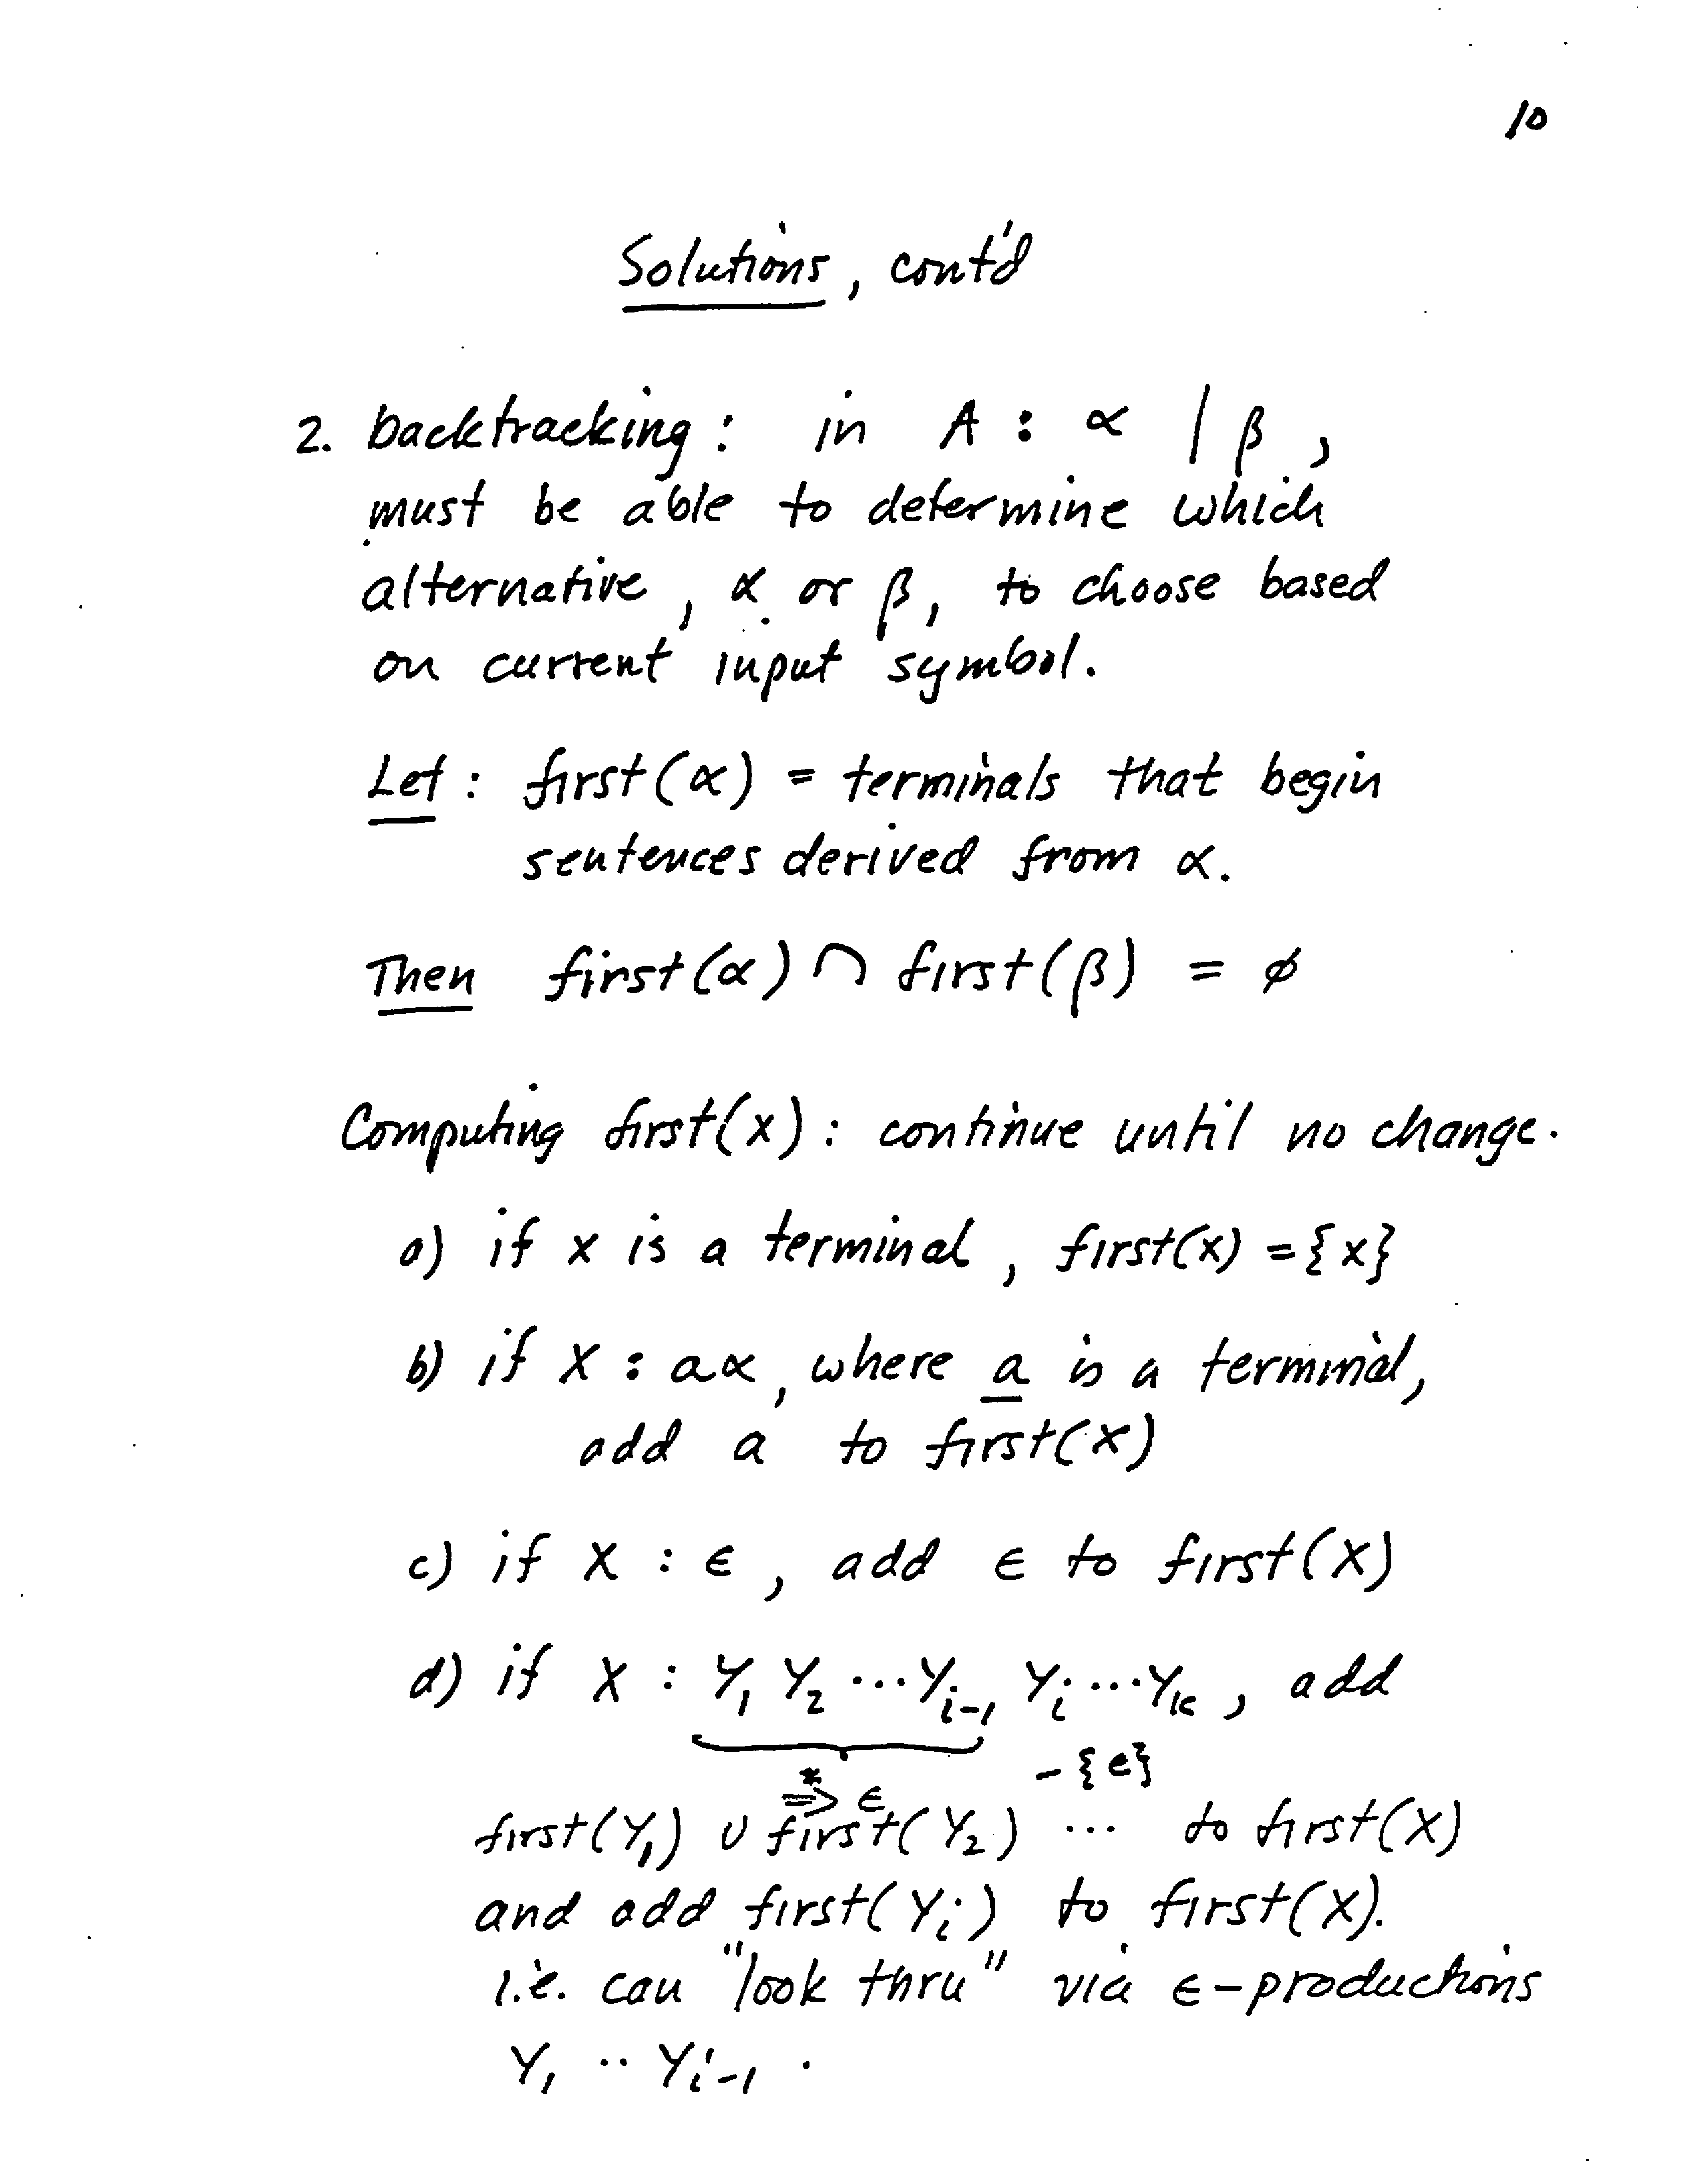 10
Solutions, cont'd
2. backtracking: in A : α | β,
must be able to determine which
alternative, α or β, to choose based
on current input symbol.
Let: first(α) = terminals that begin
sentences derived from α.
Then first(α) ∩ first(β) = ∅
Computing first(x): continue until no change.
a) if x is a terminal, first(x) = {x}
b) if X : aα, where a is a terminal,
add a to first(X)
c) if X : ϵ, add ϵ to first(X)
d) if X : Y₁ Y₂ ⋯ Yᵢ₋₁ Yᵢ ⋯ Yₖ, add
⇒* ϵ - {e}
first(Y₁) ∪ first(Y₂) ⋯ to first(X)
and add first(Yᵢ) to first(X).
i.e. can "look thru" via ϵ-productions
Y₁ ‥ Yᵢ₋₁ .